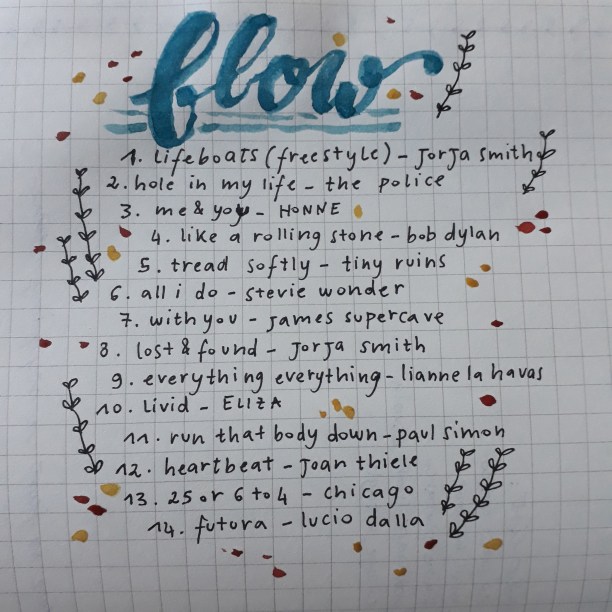 flow
1. lifeboats (freestyle) - Jorja smith
2. hole in my life - the police
3. me & you - HONNE
4. like a rolling stone - bob dylan
5. tread softly - tiny ruins
6. all i do - stevie wonder
7. with you - james supercave
8. lost & found - Jorja smith
9. everything everything - lianne la havas
10. Livid - ELIZA
11. run that body down - paul simon
12. heartbeat - Joan thiele
13. 25 or 6 to 4 - chicago
14. futura - lucio dalla